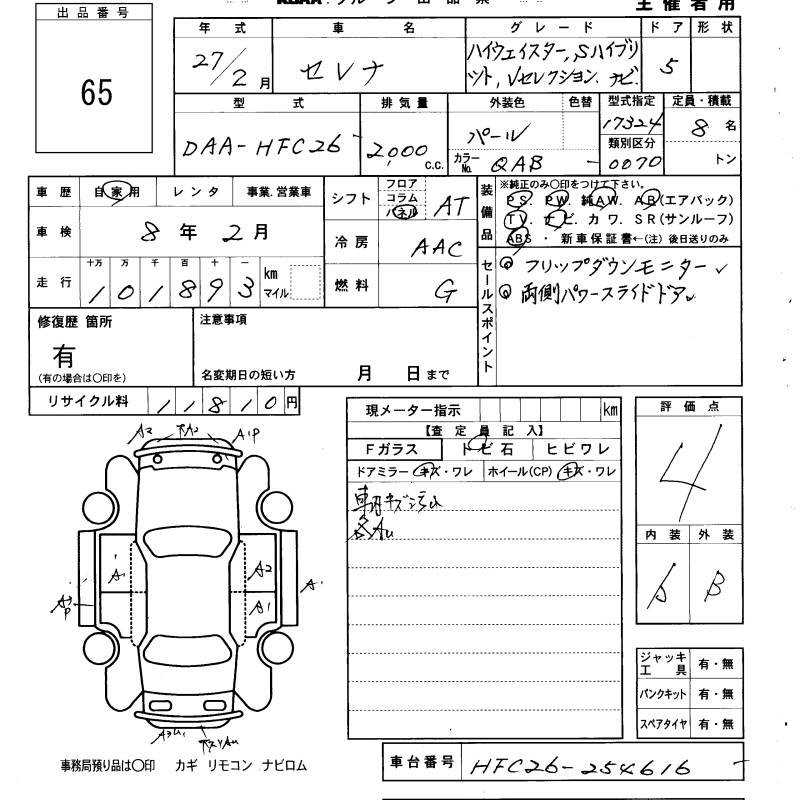 出品番号
65
主催者用
年式 車名 グレード ドア 形状
27/2月 セレナ ハイウェイスター,Sハイブリ
ット,Vセレクション.ナビ. 5
型式 排気量 外装色 色替 型式指定 定員・積載
DAA-HFC26 2,000 c.c. パール カラーNo. QAB 17324 8名
類別区分
0070 トン
車歴 自家用 レンタ 事業.営業車
車検 8年2月
走行 十万 万 千 百 十 一
101893 km マイル
シフト フロア コラム パネル AT
冷房 AAC
燃料 G
装備品 ※純正のみ○印をつけて下さい。
PS. PW. 純AW. AB(エアバック)
TV. ナビ. カワ. SR(サンルーフ)
ABS ・ 新車保証書←(注) 後日送りのみ
セールスポイント
◎ フリップダウンモニター
◎ 両側パワースライドドア
修復歴 箇所
有
(有の場合は○印を)
注意事項
名変期日の短い方 月 日まで
リサイクル料 11810円
現メーター指示 km
【査定員記入】
Fガラス トビ石 ヒビワレ
ドアミラー キズ・ワレ ホイール(CP) キズ・ワレ
評価点
4
内装 外装
B
A2 A1P
A1 A2
A1
ジャッキ工具 有・無
パンクキット 有・無
スペアタイヤ 有・無
事務局預り品は○印 カギ リモコン ナビロム
車台番号 HFC26-254616